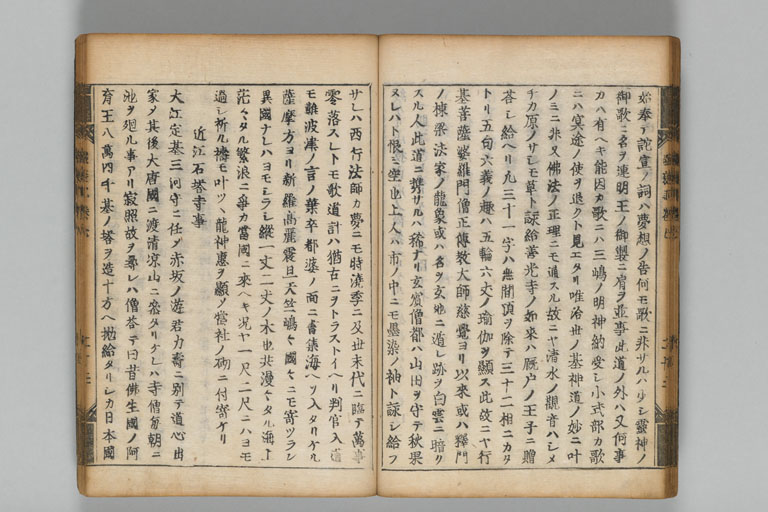 始奉テ託宣ノ詞ハ夢想ノ告何モ歌ニ非サルハ少シ靈神ノ
御歌ニ名ヲ連明王ノ御製ニ肩ヲ並事此道ノ外ハ又何事
カハ有ヘキ能因カ歌ニハ三嶋ノ明神納受シ小式部カ歌
ニハ冥途ノ使ヲ退クト見エタリ唯治世ノ基神道ノ妙ニ叶
ノミニ非又佛法ノ正理ニモ通スル故ニヤ清水ノ觀音ハシメ
チカ原ノサシモ草ト詠給善光寺ノ如來ハ厩戸ノ王子ニ贈
答シ給ヘリ凡三十一字ハ無間頂ヲ除テ三十二相ニカタ
トリ五句六義ノ趣ハ五輪六丈ノ瑜伽ヲ顯ス此故ニヤ行
基菩薩婆羅門僧正傳教大師慈覺ヨリ以來或ハ釋門
ノ棟梁法家ノ龍象或ハ名ヲ玄地ニ遁レ跡ヲ白雲ニ暗リ
スル人此道ニ携サルハ稀ナリ玄賓僧都ハ山田ヲ守テ秋果
ヌレハト恨ミ空也上人ハ市ノ中ニモ墨染ノ袖ト詠シ給フ
サレハ西行法師カ夢ニモ時澆季ニ及世末代ニ臨テ萬事
零落スレトモ歌道計ハ猶古ニヲトラストイヘリ判官入道
モ難波津ノ言ノ葉卒都婆ノ面ニ書集海ヘソ入タリケル
薩摩方ヨリ新羅高麗震旦天竺嶋々國々ニモ寄ツラン
異國ナレハヨモシラシ縱一丈二丈ノ木也共漫々タル海上
茫々タル繁浪ニ爭カ當國ニ來ヘキ況ヤ一尺二尺ニハヨモ
過シ祈ル禱モ叶ツヽ龍神憑ヲ顯ノ當社ノ砌ニ付寄ケリ
近江石塔寺事
大江定基三河守ニ任シテ赤坂ノ遊君力壽ニ別テ道心出
家ノ其後大唐國ニ渡清凉山ニ參タリケレハ寺僧毎朝ニ
池ヲ廻ル事アリ寂照故ヲ尋レハ僧答テ曰昔佛生國ノ阿
育王八萬四千基ノ塔ヲ造十方ヘ抛給タリシカ日本國